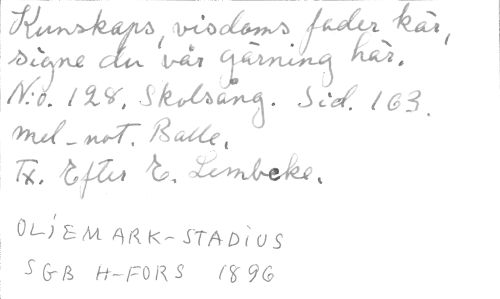 Kunskaps, visdoms fader kär,
signe du vår gärning här.
N:o. 128. Skolsång. Sid. 163.
mel-not. Balle.
Tx. Efter E. Lembcke.
OLJEMARK-STADIUS
SGB H-FORS 1896